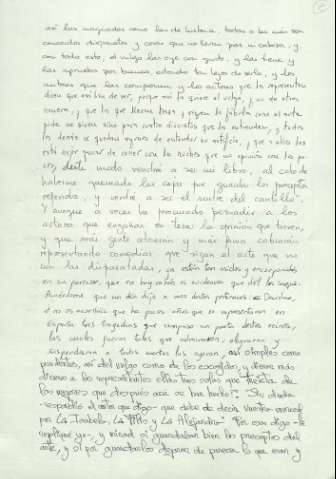 así las imaginadas como las de historia, todas o las más son
conocidos disparates y cosas que no llevan pies ni cabeza, y,
con todo esto, el vulgo las oye con gusto, y las tiene y
las aprueba por buenas, estando tan lejos de serlo, y los
autores que las componen y los actores que las representan
dicen que así han de ser, porque así las quiere el vulgo, y no de otra
manera, y que las que llevan traza y siguen la fábula como el arte
pide no sirven sino para cuatro discretos que las entienden, y todos
los demás se quedan ayunos de entender su artificio, y que a ellos les
está mejor ganar de comer con los muchos que no opinión con los po-
cos, deste modo vendrá a ser mi libro, al cabo de
haberme quemado las cejas por guardar los preceptos
referidos, y vendré a ser el sastre del cantillo.
Y aunque a veces he procurado persuadir a los
actores que se engañan en tener la opinión que tienen,
y que más gente atraerán y más fama cobrarán
representando comedias que sigan el arte que no
con las disparatadas, ya están tan asidos y encorporados
en su parecer, que no hay razón ni evidencia que dél los saque.
Acuérdome que un día dije a uno destos pertinaces: Decidme,
¿no os acordáis que ha pocos años que se representaron en
España tres tragedias que compuso un poeta destos reinos,
las cuales fueron tales que admiraron, alegraron y
suspendieron a todos cuantos las oyeron, así simples como
prudentes, así del vulgo como de los escogidos, y dieron más
dineros a los representantes ellas tres solas que treinta de
las mejores que después acá se han hecho? Sin duda
-respondió el autor que digo- que debe de decir vuestra merced
por La Isabela, La Filis y La Alejandra. Por esas digo -le
repliqué yo-, y mirad si guardaban bien los preceptos del
arte, y si por guardarlos dejaron de parecer lo que eran y